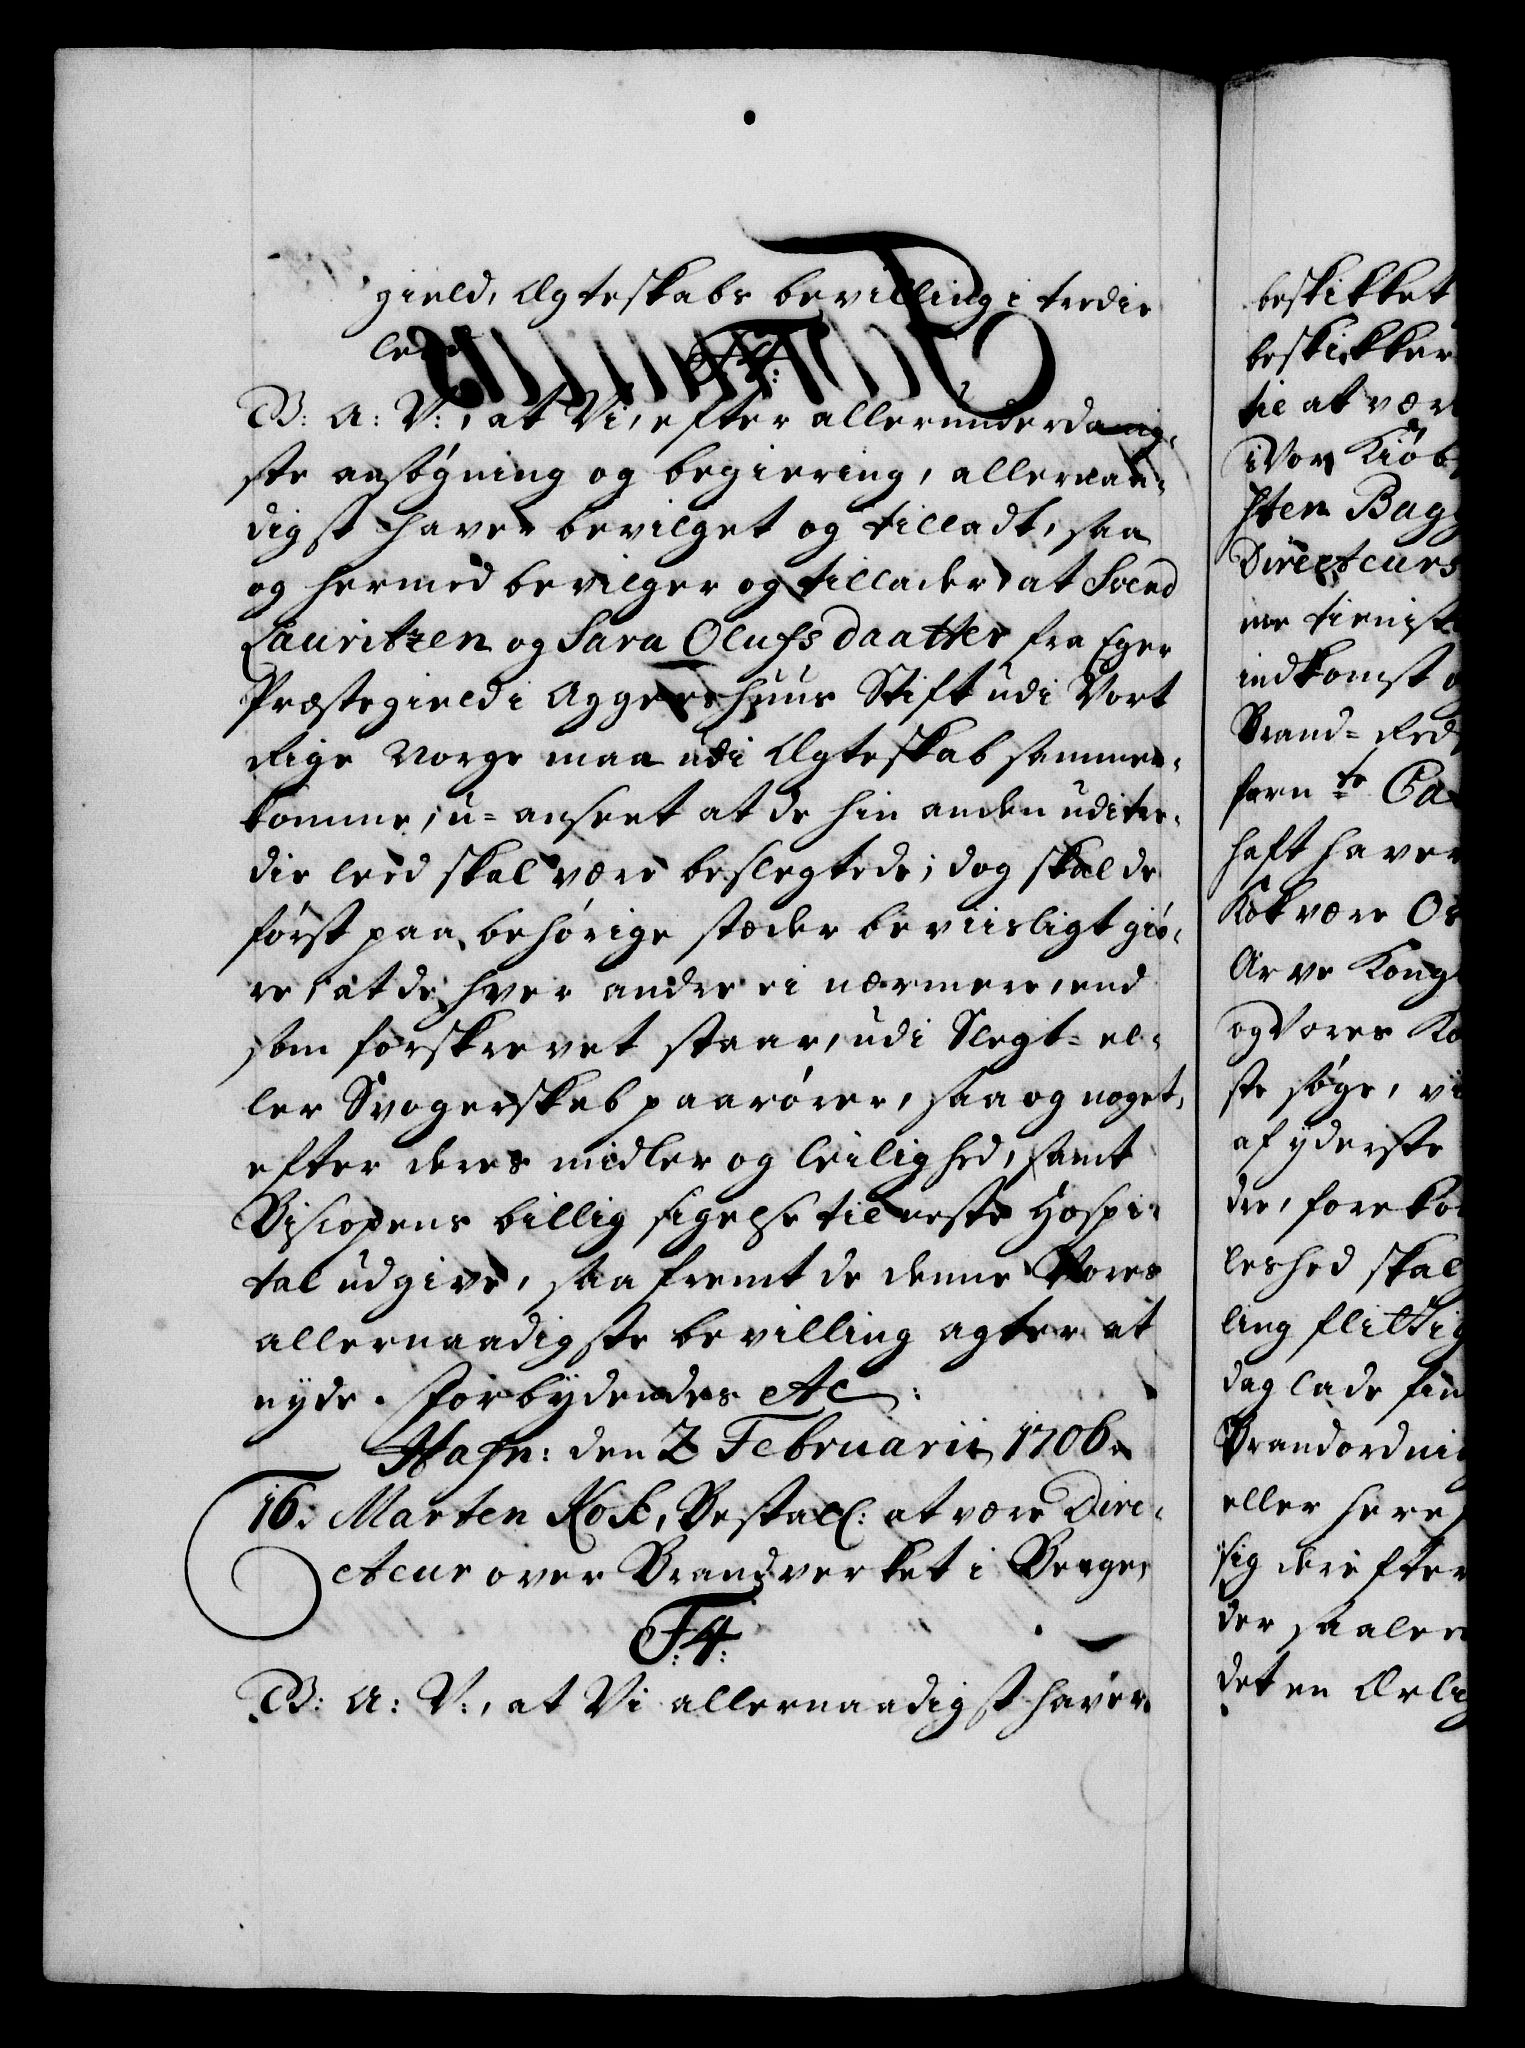 gield, Ægteskabs bevilling i tredie
leed
F: 4:
B: A: V:, at Vi, efter allerunderdanig-
ste ansøgning og begiering, allernaa-
digst haver bevilget og tilladt, saa
og hermed bevilger og tillader, at Svend
Lauritzen og Sara Olufsdaatter fra Eger
Præstegield i Aggershuus Stift udi Vort
Rige Norge maa udi Ægteskab sammen-
komme, u-anseet at de hin anden udi tre-
die leed skal være beslegtede; dog skal de
først paa behørige stæder beviisligt giø-
re, at de hver andre ei nærmere, end
som forskrevet staar, udi Slegt- el-
ler Svogerskab paarører, saa og noget,
efter deres midler og leilighed, samt
Biscopens billig sigelse til neste Hospi-
tal udgive, saafremt de denne Vores
allernaadigste bevilling agter at
nyde. Forbydendes etc:
Hafn: den 2 Februarii 1706.
16. Marten Kok, Bestall: at være Dire-
cteur over Brandverket i Bergen
F: 4:
B: A: V:, at Vi allernaadigst haver
beskikket
beskikker
til at vær
i Vor Kiøb
sten Bagg
Directeurs
ne tieniste
indkomst o
Brand-Red
forn te Ca
haft haver
Kok være Os
Arve Kong
og Vores Ko
ste søge, vi
af yderste
dre, forekom
leshed skal
ling flittig
dag lade fin
Brandordnin
eller her
sig derefter
der saalede
det en Ærlig